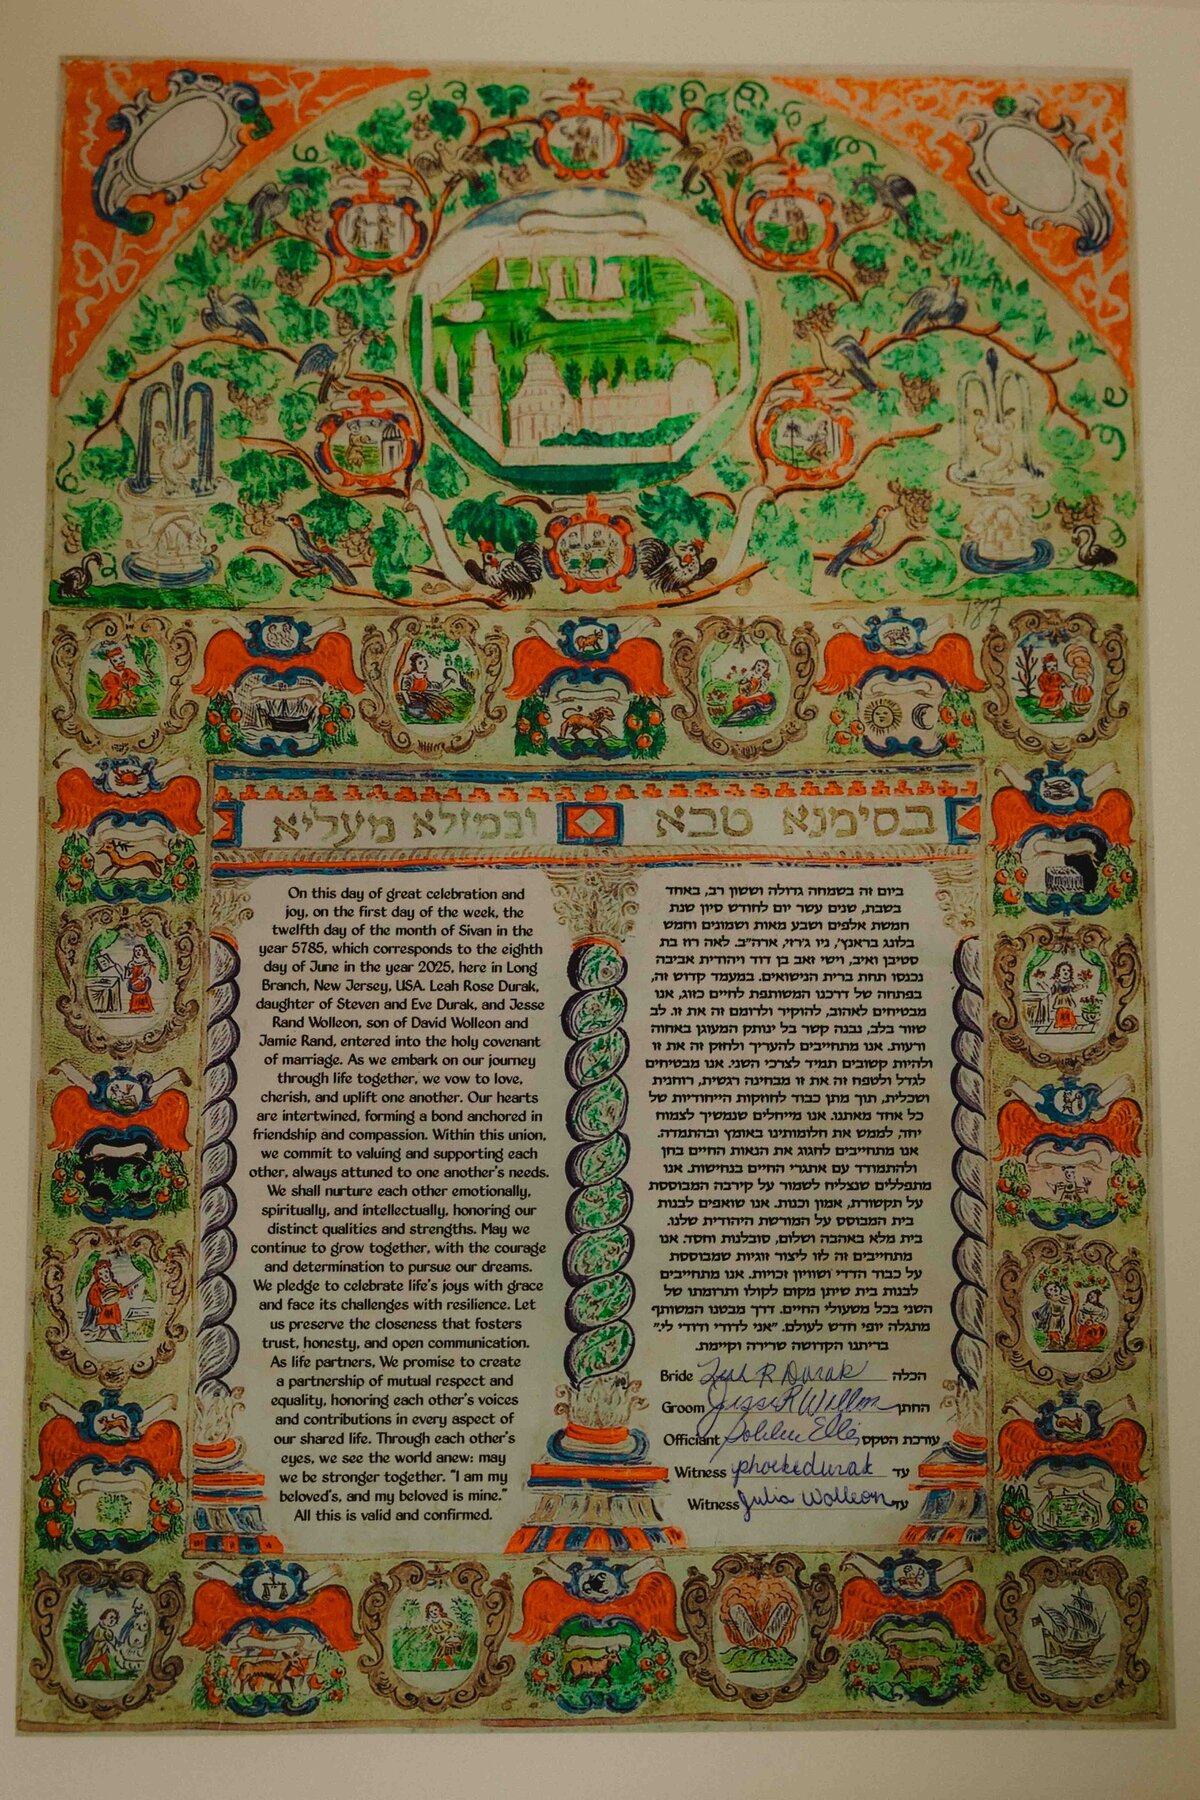 187
בסימנא טבא ובמזלא מעליא
On this day of great celebration and
joy, on the first day of the week, the
twelfth day of the month of Sivan in the
year 5785, which corresponds to the eighth
day of June in the year 2025, here in Long
Branch, New Jersey, USA. Leah Rose Durak,
daughter of Steven and Eve Durak, and Jesse
Rand Wolleon, son of David Wolleon and
Jamie Rand, entered into the holy covenant
of marriage. As we embark on our journey
through life together, we vow to love,
cherish, and uplift one another. Our hearts
are intertwined, forming a bond anchored in
friendship and compassion. Within this union,
we commit to valuing and supporting each
other, always attuned to one another's needs.
We shall nurture each other emotionally,
spiritually, and intellectually, honoring our
distinct qualities and strengths. May we
continue to grow together, with the courage
and determination to pursue our dreams.
We pledge to celebrate life's joys with grace
and face its challenges with resilience. Let
us preserve the closeness that fosters
trust, honesty, and open communication.
As life partners, We promise to create
a partnership of mutual respect and
equality, honoring each other's voices
and contributions in every aspect of
our shared life. Through each other's
eyes, we see the world anew: may
we be stronger together. "I am my
beloved's, and my beloved is mine."
All this is valid and confirmed.
ביום זה בשמחה גדולה וששון רב, באחד
בשבת, שנים עשר יום לחודש סיון שנת
חמשת אלפים ושבע מאות ושמונים וחמש
בלונג בראנץ', ניו ג'רזי, ארה"ב. לאה רוז בת
סטיבן ואיב, וישי זאב בן דוד ויהודית אביבה
נכנסו תחת ברית הנישואים. במעמד קדוש זה,
בפתחה של דרכנו המשותפת לחיים כזוג, אנו
מבטיחים לאהוב, להוקיר ולרומם זה את זו. לב
שזור בלב, נבנה קשר בל ינותק המעוגן באחוה
ורעות. אנו מתחייבים להעריך ולחזק זה את זו
ולהיות קשובים תמיד לצרכי השני. אנו מבטיחים
לגדל ולטפח זה את זו מבחינה רגשית, רוחנית
ושכלית, תוך מתן כבוד לחוזקות הייחודיות של
כל אחד מאתנו. אנו מייחלים שנמשיך לצמוח
יחד, לממש את חלומותינו באומץ ובהתמדה.
אנו מתחייבים לחגוג את הנאות החיים בחן
ולהתמודד עם אתגרי החיים בנחישות. אנו
מתפללים שנצליח לשמור על קירבה המבוססת
על תקשורת, אמון וכנות. אנו שואפים לבנות
בית המבוסס על המורשת היהודית שלנו.
בית מלא באהבה ושלום, סובלנות וחסד. אנו
מתחייבים זה לזו ליצור זוגיות שמבוססת
על כבוד הדדי ושוויון זכויות. אנו מתחייבים
לבנות בית שיתן מקום לקולו ותרומתו של
השני בכל משעולי החיים. דרך מבטנו המשותף
מתגלה יופי חדש לעולם. "אני לדודי ודודי לי."
בריתנו הקדושה שרירה וקיימת.
Bride Leah R Durak הכלה
Groom Jesse R Wolleon החתן
Officiant Ellis עורכת הטקס
Witness phoebe durak עד
Witness Julia Wolleon עד